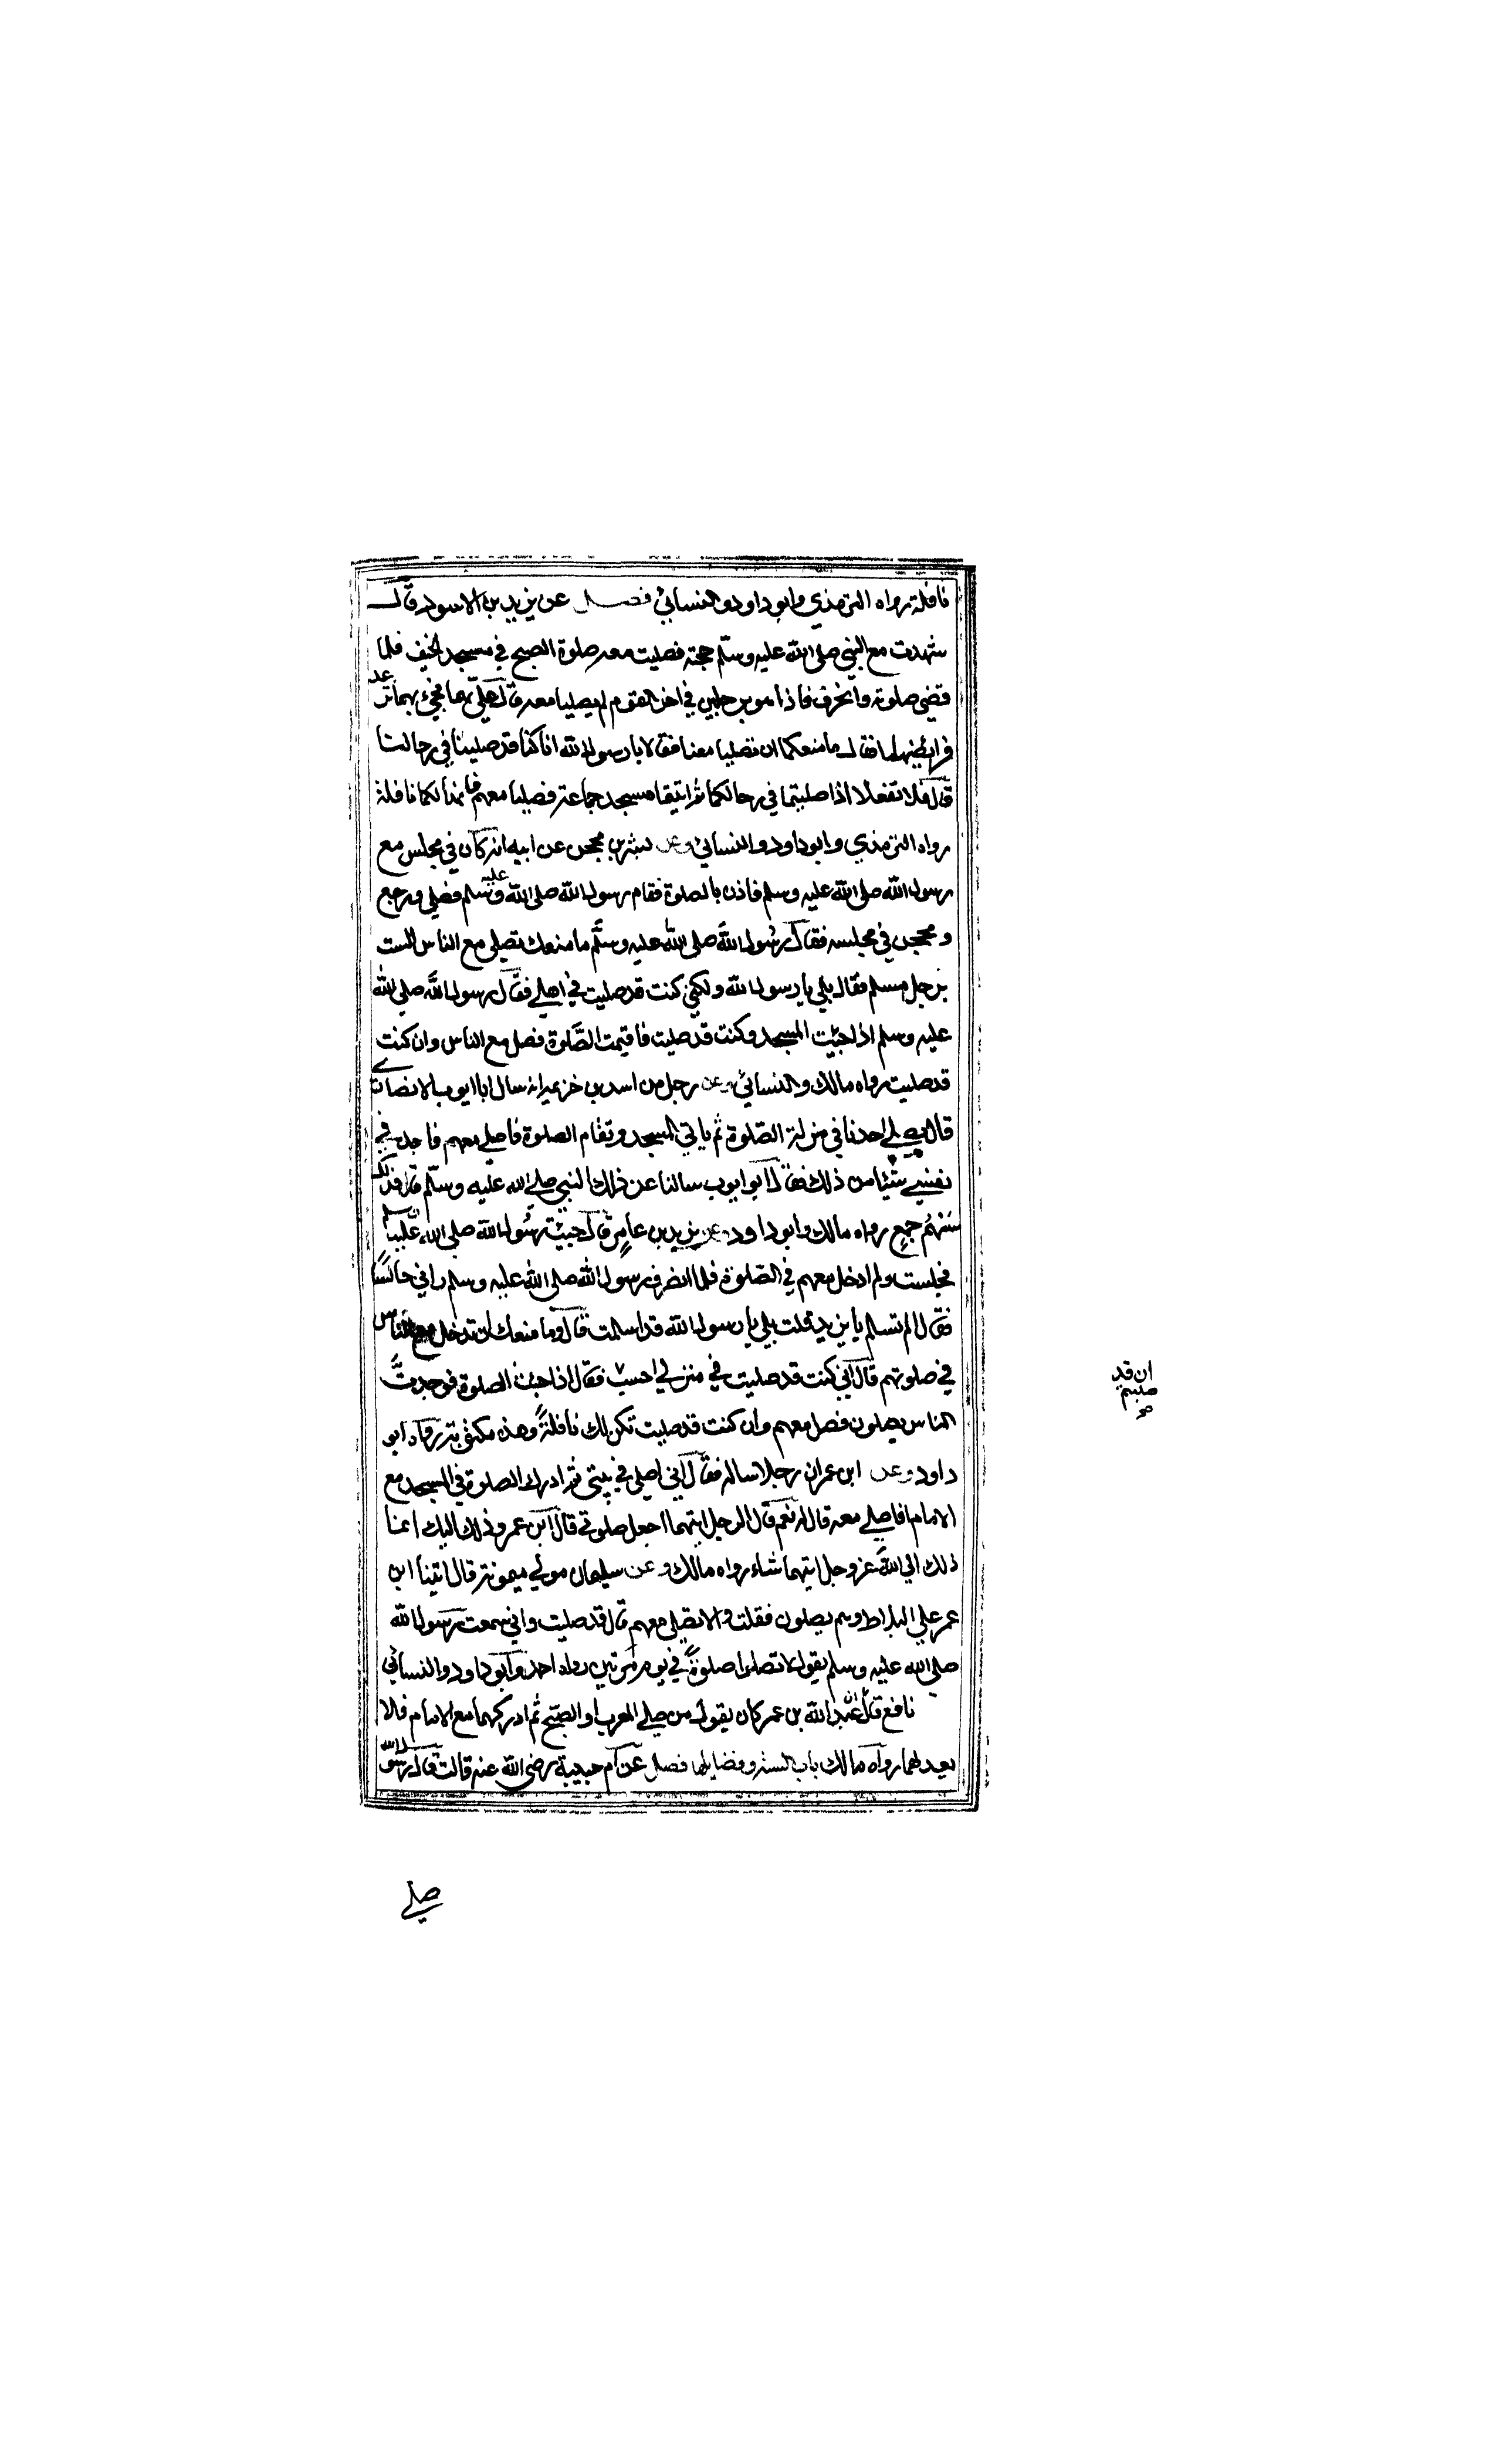 نافلة رواه الترمذي وابو داود والنسائي فصل عن يزيد بن الاسود قال
شهدت مع النبي صلى الله عليه وسلم حجته فصليت معه صلوة الصبح في مسجد الخيف فلما
قضى صلوته وانحرف فاذا هو برجلين في اخر القوم لم يصليا معه قال علي بهما فجيء بهما ترعد
فرائصهما فقال ما منعكما ان تصليا معنا فقالا يا رسول الله انا كنا قد صلينا في رحالنا
قال فلا تفعلا اذا صليتما في رحالكما ثم اتيتما مسجد جماعة فصليا معهم فانها لكما نافلة
رواه الترمذي وابو داود والنسائي وعن بشر بن محجن عن ابيه انه كان في مجلس مع
رسول الله صلى الله عليه وسلم فاذن بالصلوة فقام رسول الله صلى الله عليه وسلم فصلى ورجع
ومحجن في مجلسه فقال رسول الله صلى الله عليه وسلم ما منعك تصلي مع الناس الست
برجل مسلم فقال بلى يا رسول الله ولكني كنت قد صليت في اهلي فقال رسول الله صلى الله
عليه وسلم اذا جئت المسجد وكنت قد صليت فاقيمت الصلوة فصل مع الناس وان كنت
قد صليت رواه مالك والنسائي وعن رجل من اسد بن خزيمة انه سال ابا ايوب الانصاري
قال يصلي احدنا في منزله الصلوة ثم ياتي المسجد وتقام الصلوة فاصلي معهم فاجد في
نفسي شيئا من ذلك فقال ابو ايوب سالنا عن ذلك النبي صلى الله عليه وسلم قال فذلك
سهم جمع رواه مالك وابو داود وعن يزيد بن عامر قال جئت رسول الله صلى الله عليه وسلم
فجلست ولم ادخل معهم في الصلوة فلما انصرف رسول الله صلى الله عليه وسلم راني جالسا
فقال الم تسلم يا يزيد قلت بلى يا رسول الله قد اسلمت قال وما منعك ان تدخل مع الناس
في صلوتهم قال اني كنت قد صليت في منزلي احسب فقال اذا جئت الصلوة فوجدت
الناس يصلون فصل معهم وان كنت قد صليت تكن لك نافلة وهذه مكتوبة رواه ابو
داود وعن ابن عمر ان رجلا ساله فقال اني اصلي في بيتي ثم ادرك الصلوة في المسجد مع
الامام افاصلي معه قال له نعم قال الرجل ايتهما اجعل صلوتي قال ابن عمر وذلك اليك انما
ذلك الى الله عز وجل ايتهما شاء رواه مالك وعن سليمان مولى ميمونة قال اتينا ابن
عمر على البلاط وهم يصلون فقلت الا تصلي معهم قال قد صليت واني سمعت رسول الله
صلى الله عليه وسلم يقول لا تصلوا صلوة في يوم مرتين رواه احمد وابو داود والنسائي
نافع قال ان عبد الله بن عمر كان يقول من صلى المغرب او الصبح ثم ادركهما مع الامام فلا
يعد لهما رواه مالك باب السنن وفضايلها فصل عن ام حبيبة رضي الله عنه قالت قال رسول الله
ان قد
صليتم
صح
صلى